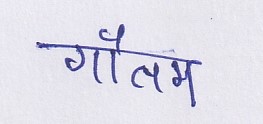 गौतम